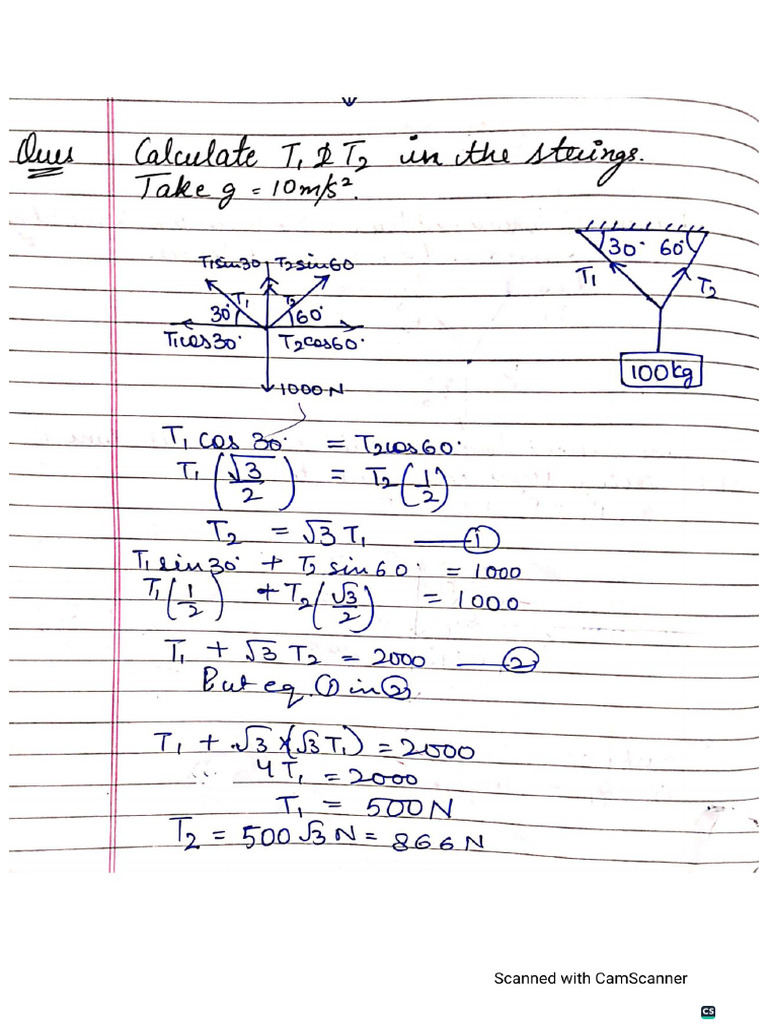 Ques Calculate T₁ & T₂ in the strings.
Take g = 10 m/s².
T₁sin30 T₂sin60
T₁ T₂
30° 60°
T₁cos30° T₂cos60°
1000 N
30° 60°
T₁ T₂
100kg
T₁ cos 30° = T₂cos60°
T₁ (√3/2) = T₂ (1/2)
T₂ = √3 T₁ —— ①
T₁ sin30° + T₂ sin60 = 1000
T₁ (1/2) + T₂ (√3/2) = 1000
T₁ + √3 T₂ = 2000 —— ②
Put eq. ① in ②
T₁ + √3 × (√3 T₁) = 2000
4T₁ = 2000
T₁ = 500N
T₂ = 500√3 N = 866N
Scanned with CamScanner
CS